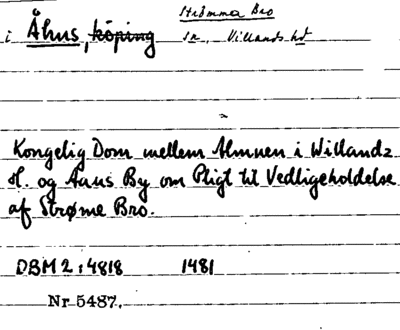 Strömma Bro
i Åhus, köping sn, Villands hd
Kongelig Dom mellem Almuen i Willandz
H. og Aaus By om Pligt til Vedligeholdelse
af Strøme Bro.
DBM 2:4818 1481
Nr 5487.